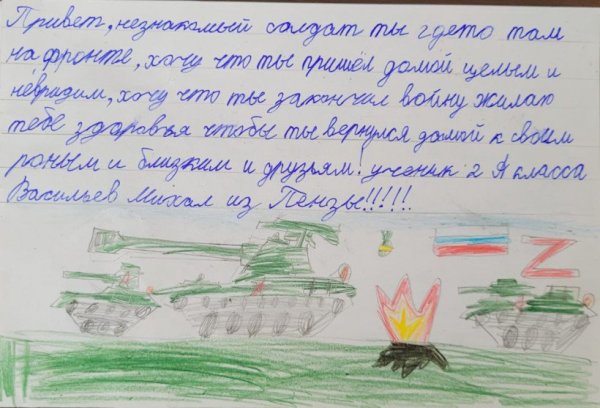 Привет, незнакомый солдат ты гдето там
на фронте, хочу что ты пришёл домой целым и
невридим, хочу что ты закончил войну жилаю
тебе здоровья чтобы ты вернулся домой к своим
роным и близким и друзьям! ученик 2 Я класса
Васильев Михал из Пензы!!!!!!
Z